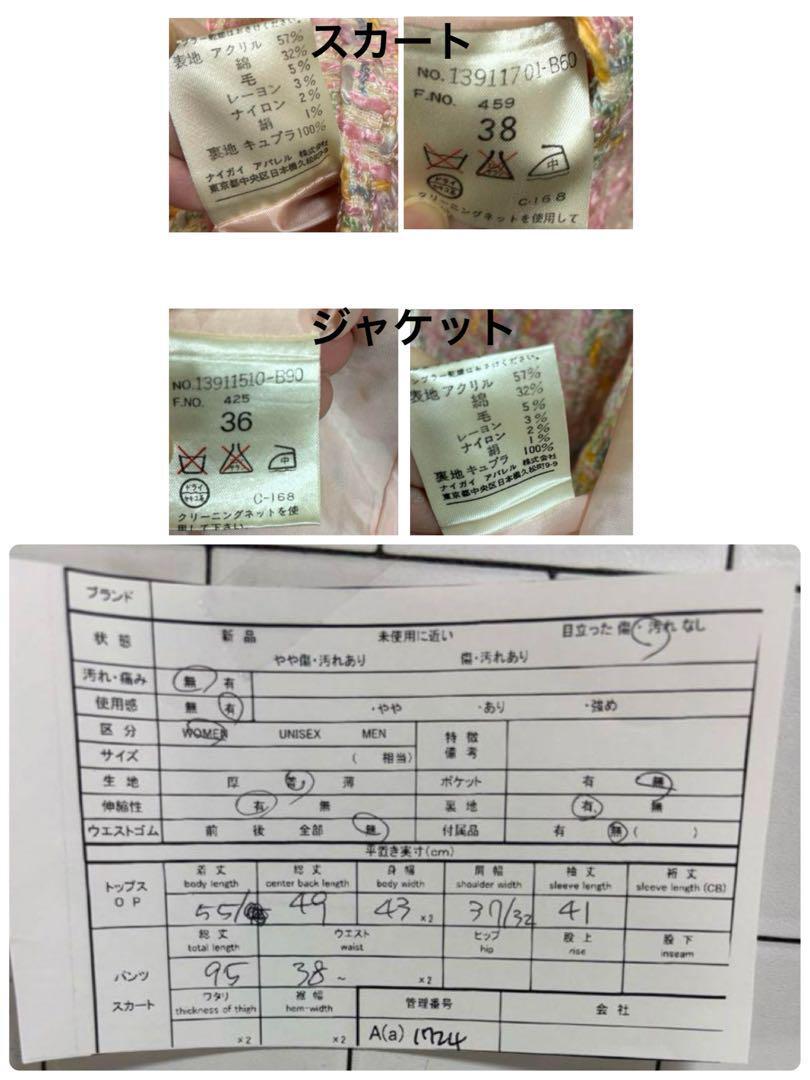 スカート
表地 アクリル 57%
綿 32%
毛 5%
レーヨン 3%
ナイロン 2%
絹 1%
裏地 キュプラ100%
ナイガイ アパレル 株式会社
東京都中央区日本橋久松町9-9
NO.13911701-B60
F.NO. 459
38
中
ドライ
C-168
クリーニングネットを使用して
ジャケット
NO.13911510-B90
F.NO. 425
36
中
ドライ
C-168
クリーニングネットを使
用して下さい。
表地 アクリル 57%
綿 32%
毛 5%
レーヨン 3%
ナイロン 2%
絹 1%
裏地 キュプラ 100%
ナイガイ アパレル 株式会社
東京都中央区日本橋久松町9-9
ブランド
状態 新品 未使用に近い 目立った傷・汚れなし
やや傷・汚れあり 傷・汚れあり
汚れ・痛み 無 有
使用感 無 有 ・やや ・あり ・強め
区分 WOMEN UNISEX MEN 特徴 備考
サイズ ( 相当)
生地 厚 普 薄 ポケット 有 無
伸縮性 有 無 裏地 有 無
ウエストゴム 前 後 全部 無 付属品 有 無 ( )
平置き実寸(cm)
トップス OP
着丈 総丈 身幅 肩幅 袖丈 裄丈
body length center back length body width shoulder width sleeve length sleeve length (CB)
55/ 49 43 ×2 37/32 41
パンツ スカート
総丈 ウエスト ヒップ 股上 股下
total length waist hip rise inseam
95 38~ ×2
ワタリ 裾幅 管理番号 会社
thickness of thigh hem-width
×2 ×2 A(a) 1724